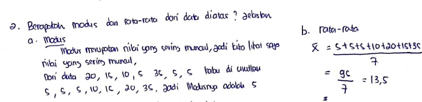 2. Berapakah modus dan rata-rata dari data diatas? Jelaskan
a. Modus
Modus merupakan nilai yang sering muncul, jadi kita lihat saja
nilai yang sering muncul,
Dari data 20, 15, 10, 5 35, 5, 5 lalu di urutkan
5, 5, 5, 10, 15, 20, 35, jadi Modusnya adalah 5
b. rata-rata
x̄ = 5+5+5+10+20+15+35
7
= 95
7
= 13,5